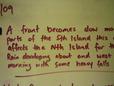 /09
A front becomes slow mo
parts of the Sth Island this
affects the Nth Island for t
Rain developing about and west
morning with some heavy falls